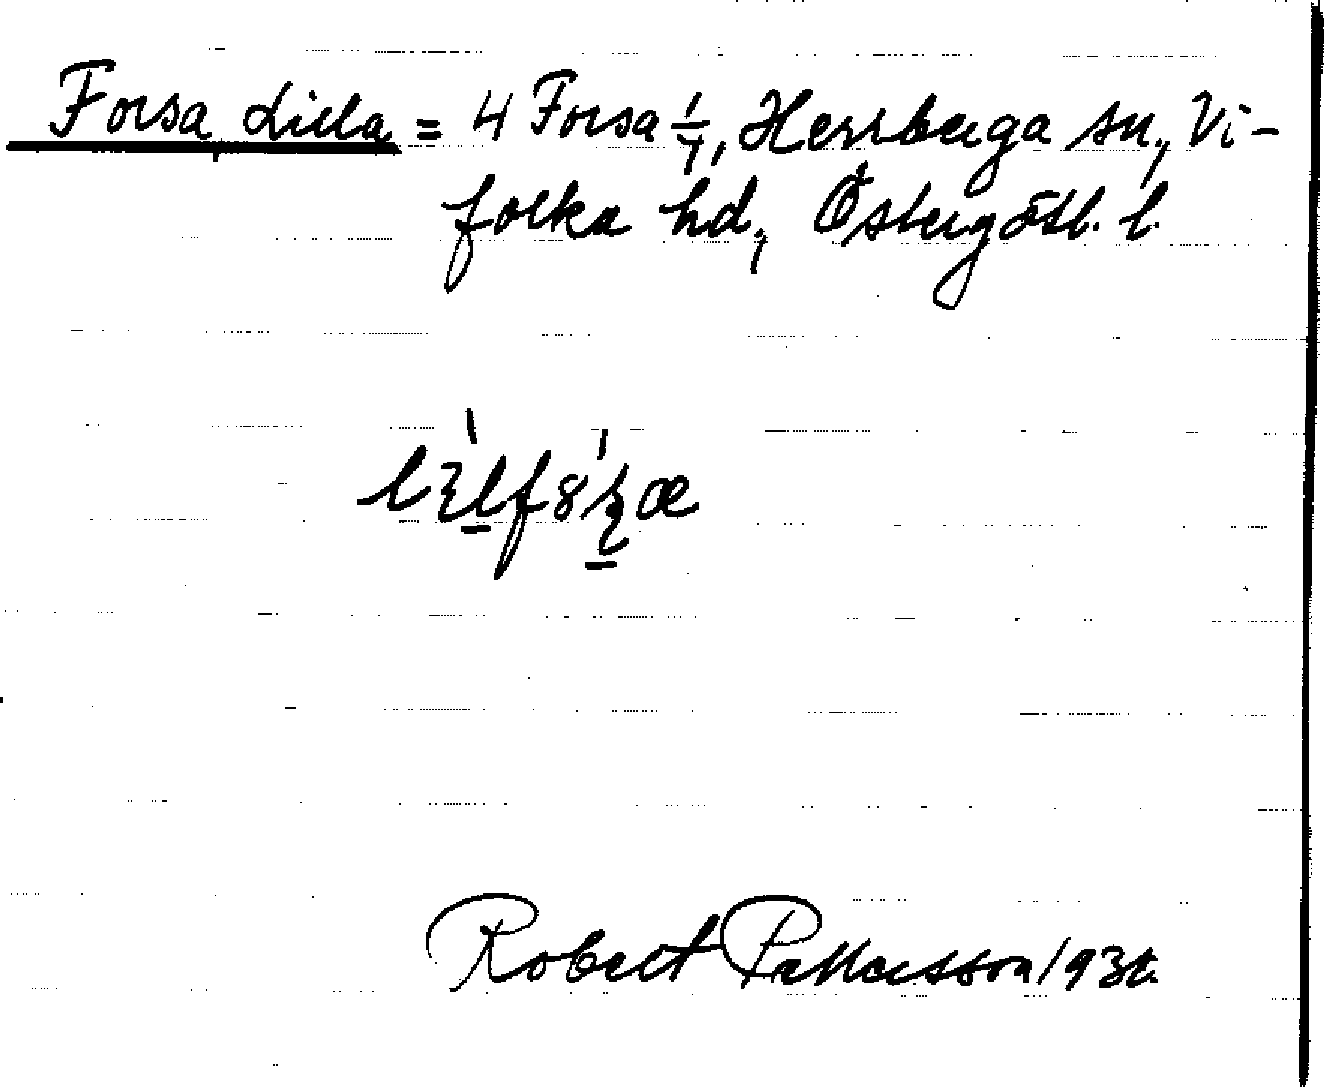 Forsa, Lilla = 4 Forsa 1/1, Herrberga sn, Vi-
folka hd, Östergötl. l.
Robert Pettersson